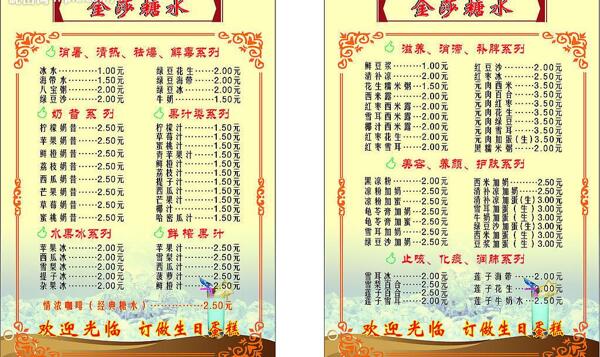 金莎糖水
消暑、清热、祛燥、解毒系列
冰水········1.00元
海带水······1.50元
八宝粥······2.00元
绿豆沙······2.00元
绿豆花生····2.00元
绿豆海带····2.00元
绿豆冰······2.00元
牛奶········1.50元
奶昔系列
柠檬奶昔····2.50元
苹果奶昔····2.50元
鲜橙奶昔····2.50元
荔枝奶昔····2.50元
西瓜奶昔····2.50元
芒果奶昔····2.50元
草莓奶昔····2.50元
蜜桃奶昔····2.50元
果汁类系列
柠檬汁······1.50元
草莓汁······1.50元
蜜桃汁······1.50元
青苹果汁····1.50元
鲜橙汁······1.50元
荔枝汁······1.50元
提子汁······1.50元
西瓜汁······1.50元
芒果汁······1.50元
椰汁········1.50元
哈密瓜汁····1.50元
水果冰系列
苹果冰······2.00元
西瓜冰······2.00元
雪梨冰······2.00元
提子冰······2.00元
杂果冰······2.00元
鲜榨果汁
苹果汁······2.50元
西瓜汁······2.50元
雪梨汁······2.50元
菠萝汁······2.50元
鲜橙汁······2.50元
情浓咖啡（经典糖水）····2.00元
欢迎光临 打做生日蛋糕
金莎糖水
滋养、消滞、补脾系列
鲜豆浆······1.00元
清补凉······2.00元
花生糯米粥··1.50元
西米露······2.00元
红枣西米露··2.00元
雪耳西米露··2.00元
椰汁西米露··2.00元
红枣鲜橙····2.00元
红枣雪耳····2.00元
红豆沙······2.00元
红枣冰······2.00元
元肉西米····3.50元
元肉百合····3.50元
元肉红枣····3.50元
元肉花生····3.50元
元肉绿豆····3.50元
元肉雪耳····3.50元
元肉加蛋（生）3.50元
黑糯米粥····2.00元
美容、养颜、护肤系列
黑凉粉······2.00元
凉粉加奶····2.50元
凉粉加蜜····2.50元
龟苓膏加奶··2.50元
龟苓膏加蜜··2.50元
雪耳加奶····2.50元
绿豆沙加奶··2.50元
西米加奶····2.50元
清补凉加奶··2.50元
清补凉加蛋(生)3.00元
雪耳加蛋(生)3.00元
牛奶加蛋(生)3.00元
绿豆沙加蛋(生)3.00元
西米加蛋(生)3.00元
豆浆加蛋(生)3.00元
止咳、化痰、润肺系列
雪耳冰······2.00元
雪梨百合····2.50元
莲子百合····2.50元
莲子海带····2.00元
莲子花生····2.00元
莲子牛奶水··2.50元
欢迎光临 打做生日蛋糕